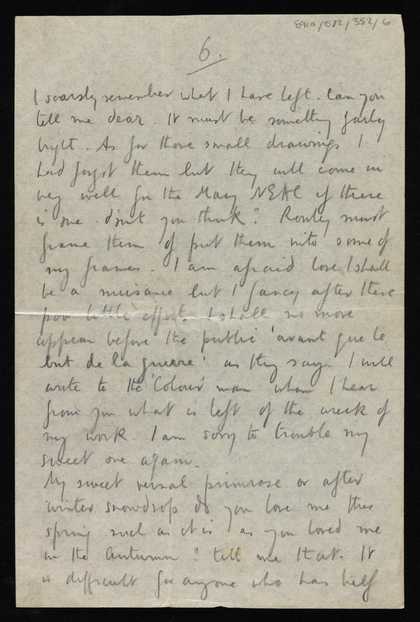 6.
I scarsly remember what I have left. Can you
tell me dear. It must be something fairly
bright. As for those small drawings I
had forgot them but they will come in
very well for the May NEAC if there
is one. don't you think? Rowley must
frame them & put them into some of
my frames. I am afraid love I shall
be a nuisance but I fancy after these
poor little efforts I shall no more
appear before the public 'avant que le
but de la guerre' as they say. I will
write to the 'Colour' man when I hear
from you what is left of the wreck of
my work. I am sorry to trouble my
sweet one again.
My sweet vernal primrose or after
winter snowdrop do you love me this
spring such as it is as you loved me
in the Autumn? tell me that. It
is difficult for anyone who has half